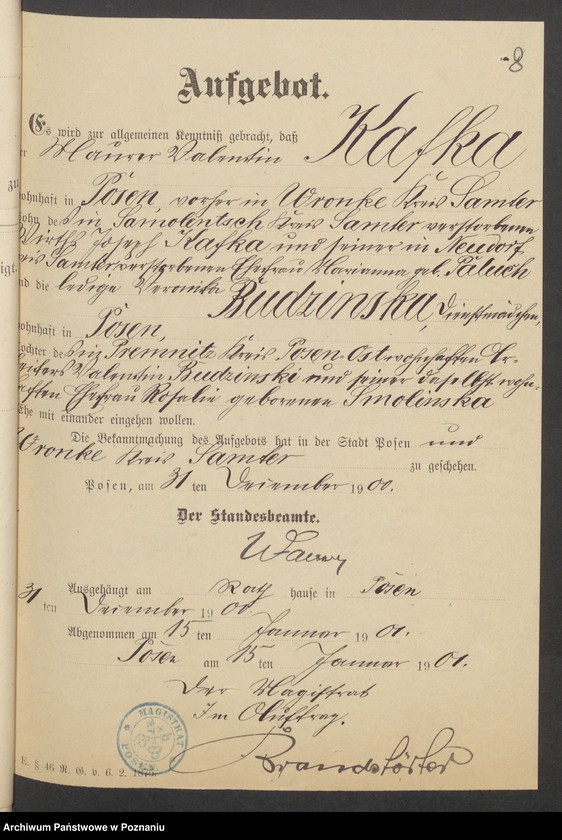 -8
Aufgebot.
Es wird zur allgemeinen Kenntniß gebracht, daß
er Maurer Valentin Kafka
wohnhaft in Posen vorher in Wronke Kreis Samter
Sohn des in Samolentsch Kreis Samter verstorbenen
Wirths Joseph Kafka und seiner in Neudorf
Kreis Samter verstorbenen Ehefrau Marianna geb. Paluch
und die ledige Veronika Budzinska, Dienstmädchen,
wohnhaft in Posen,
Tochter des in Premnitz Kreis Posen-Ost wohnhaften Ar-
beiters Valentin Budzinski und seiner daselbst wohn-
haften Ehefrau Rosalie geborenen Smolinska
Ehe mit einander eingehen wollen.
Die Bekanntmachung des Aufgebots hat in der Stadt Posen und
Wronke Kreis Samter zu geschehen.
Posen, am 31 ten Dezember 1900.
Der Standesbeamte.
Ausgehängt am Rath hause in Posen
31 ten Dezember 1900
Abgenommen am 15 ten Januar 1901.
Posen am 15 ten Januar 1901.
Der Magistrat
Im Auftrag.
Brandstäter
MAGISTRAT POSEN
E. § 46 R. G. v. 6. 2. 1875.
Archiwum Państwowe w Poznaniu